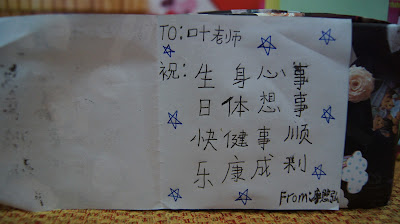 TO:叶老师
祝: 生身心事
日体想事
快健事顺
乐康成利
From: